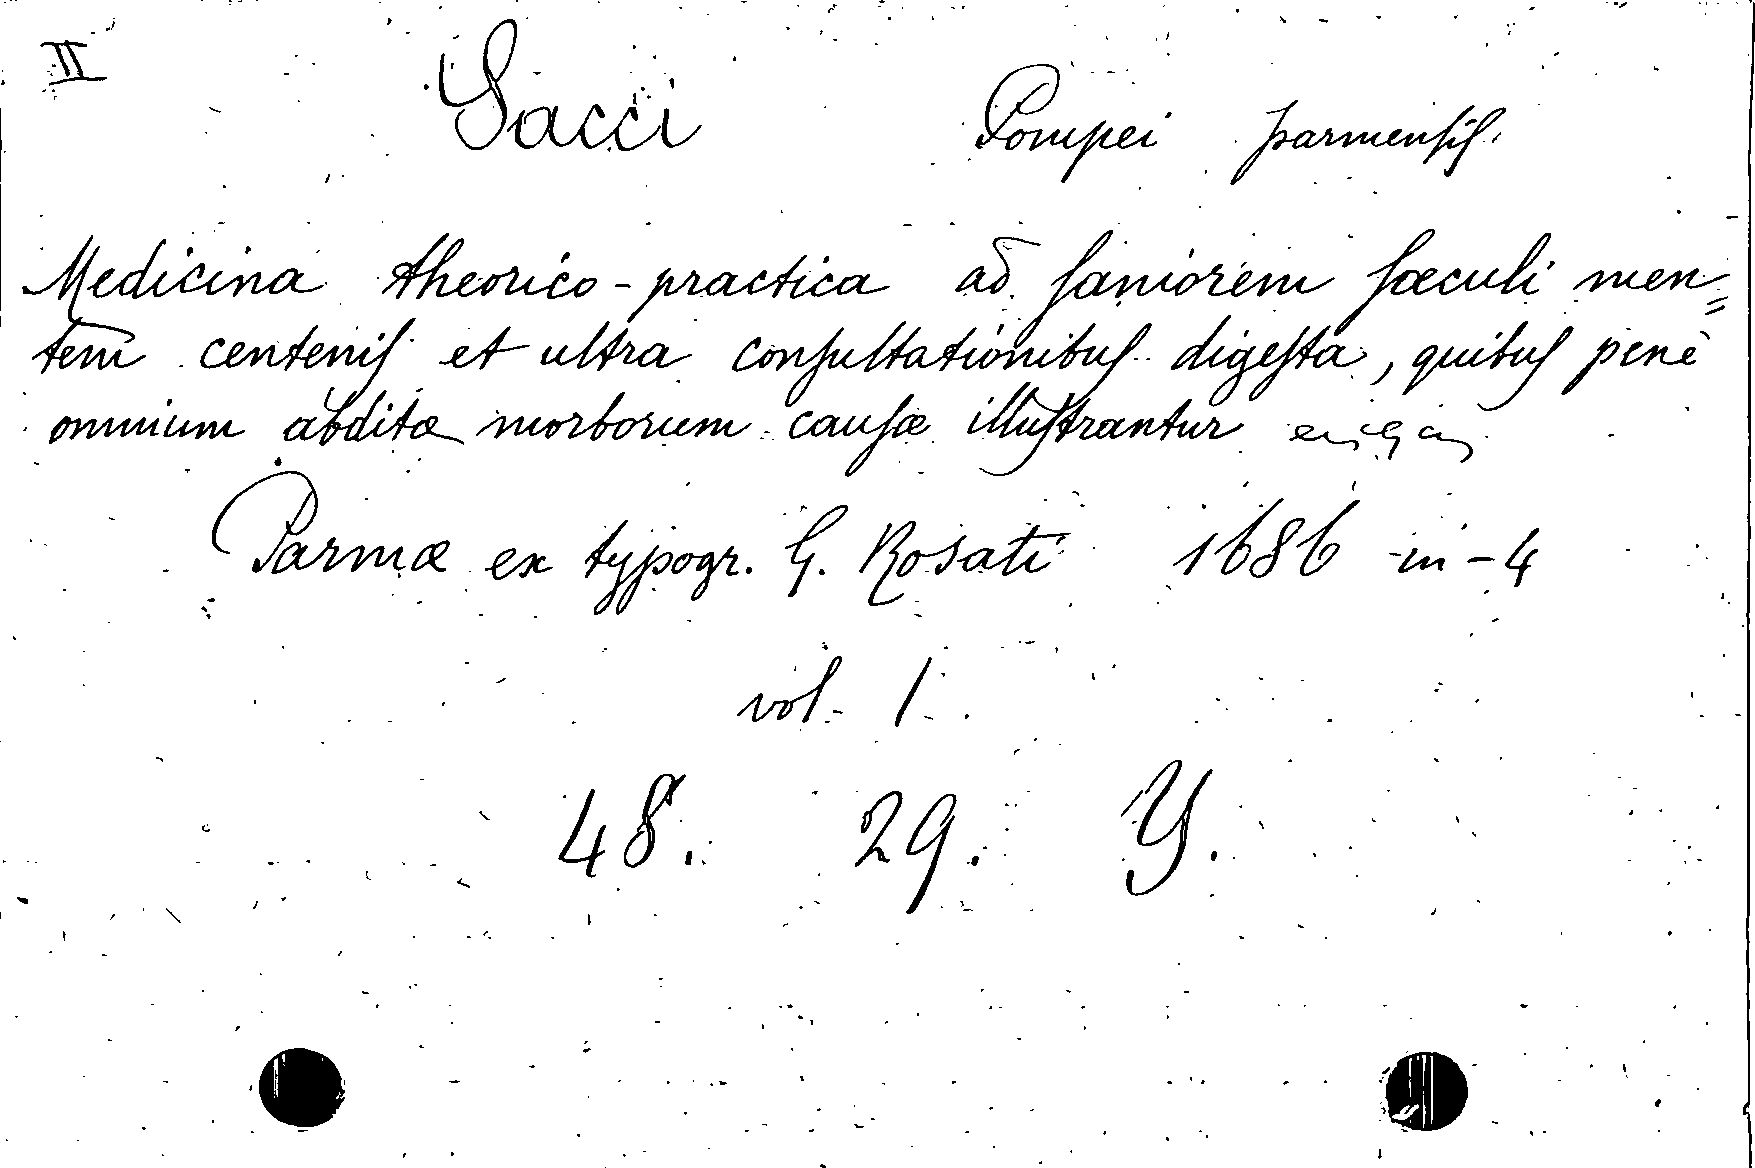 II
Sacci Pompei parmensis.
Medicina theorico-practica ad saniorem sæculi men=
tem centenis et ultra consultationibus digesta, quibus penè
omnium abditæ morborum causæ illustrantur
Parmæ ex typogr. G. Rosati 1686 in-4
vol. 1.
48. 29. Y.